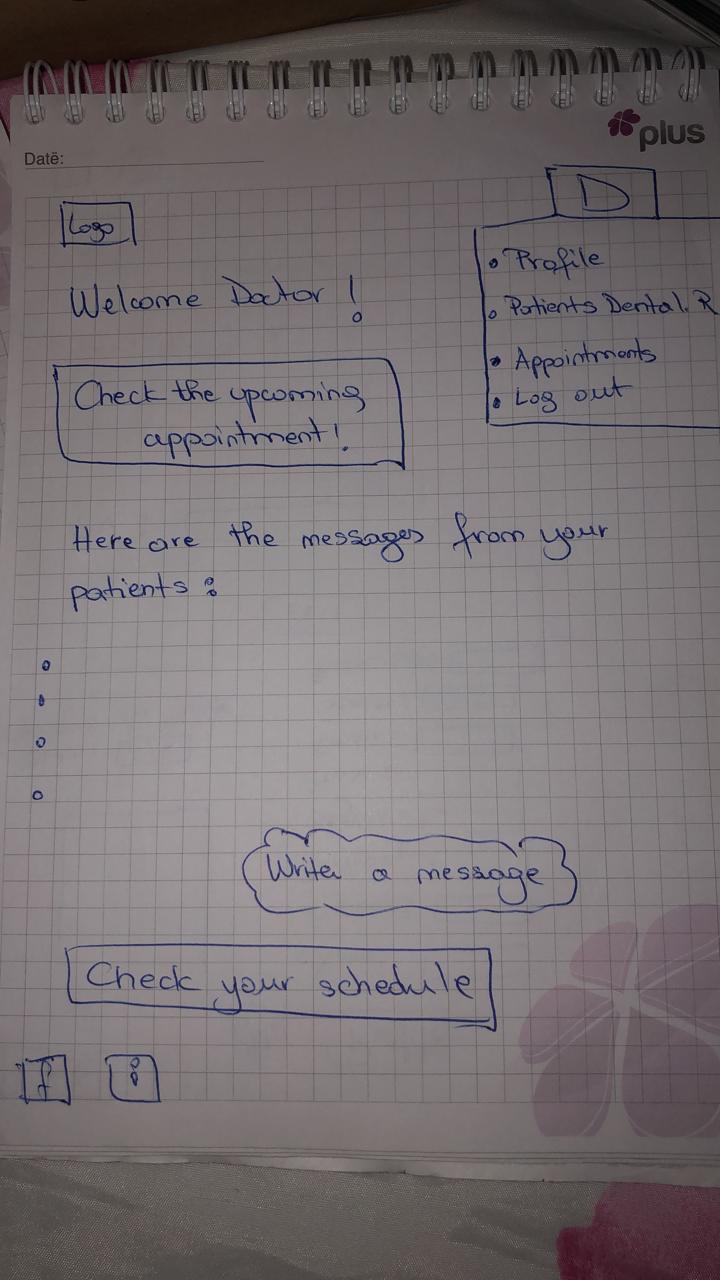 plus
Datë:
Logo
D
Welcome Doctor !
• Profile
• Patients Dental. R
• Appointments
• Log out
Check the upcoming
appointment!
Here are the messages from your
patients :
Write a message
Check your schedule
f
i